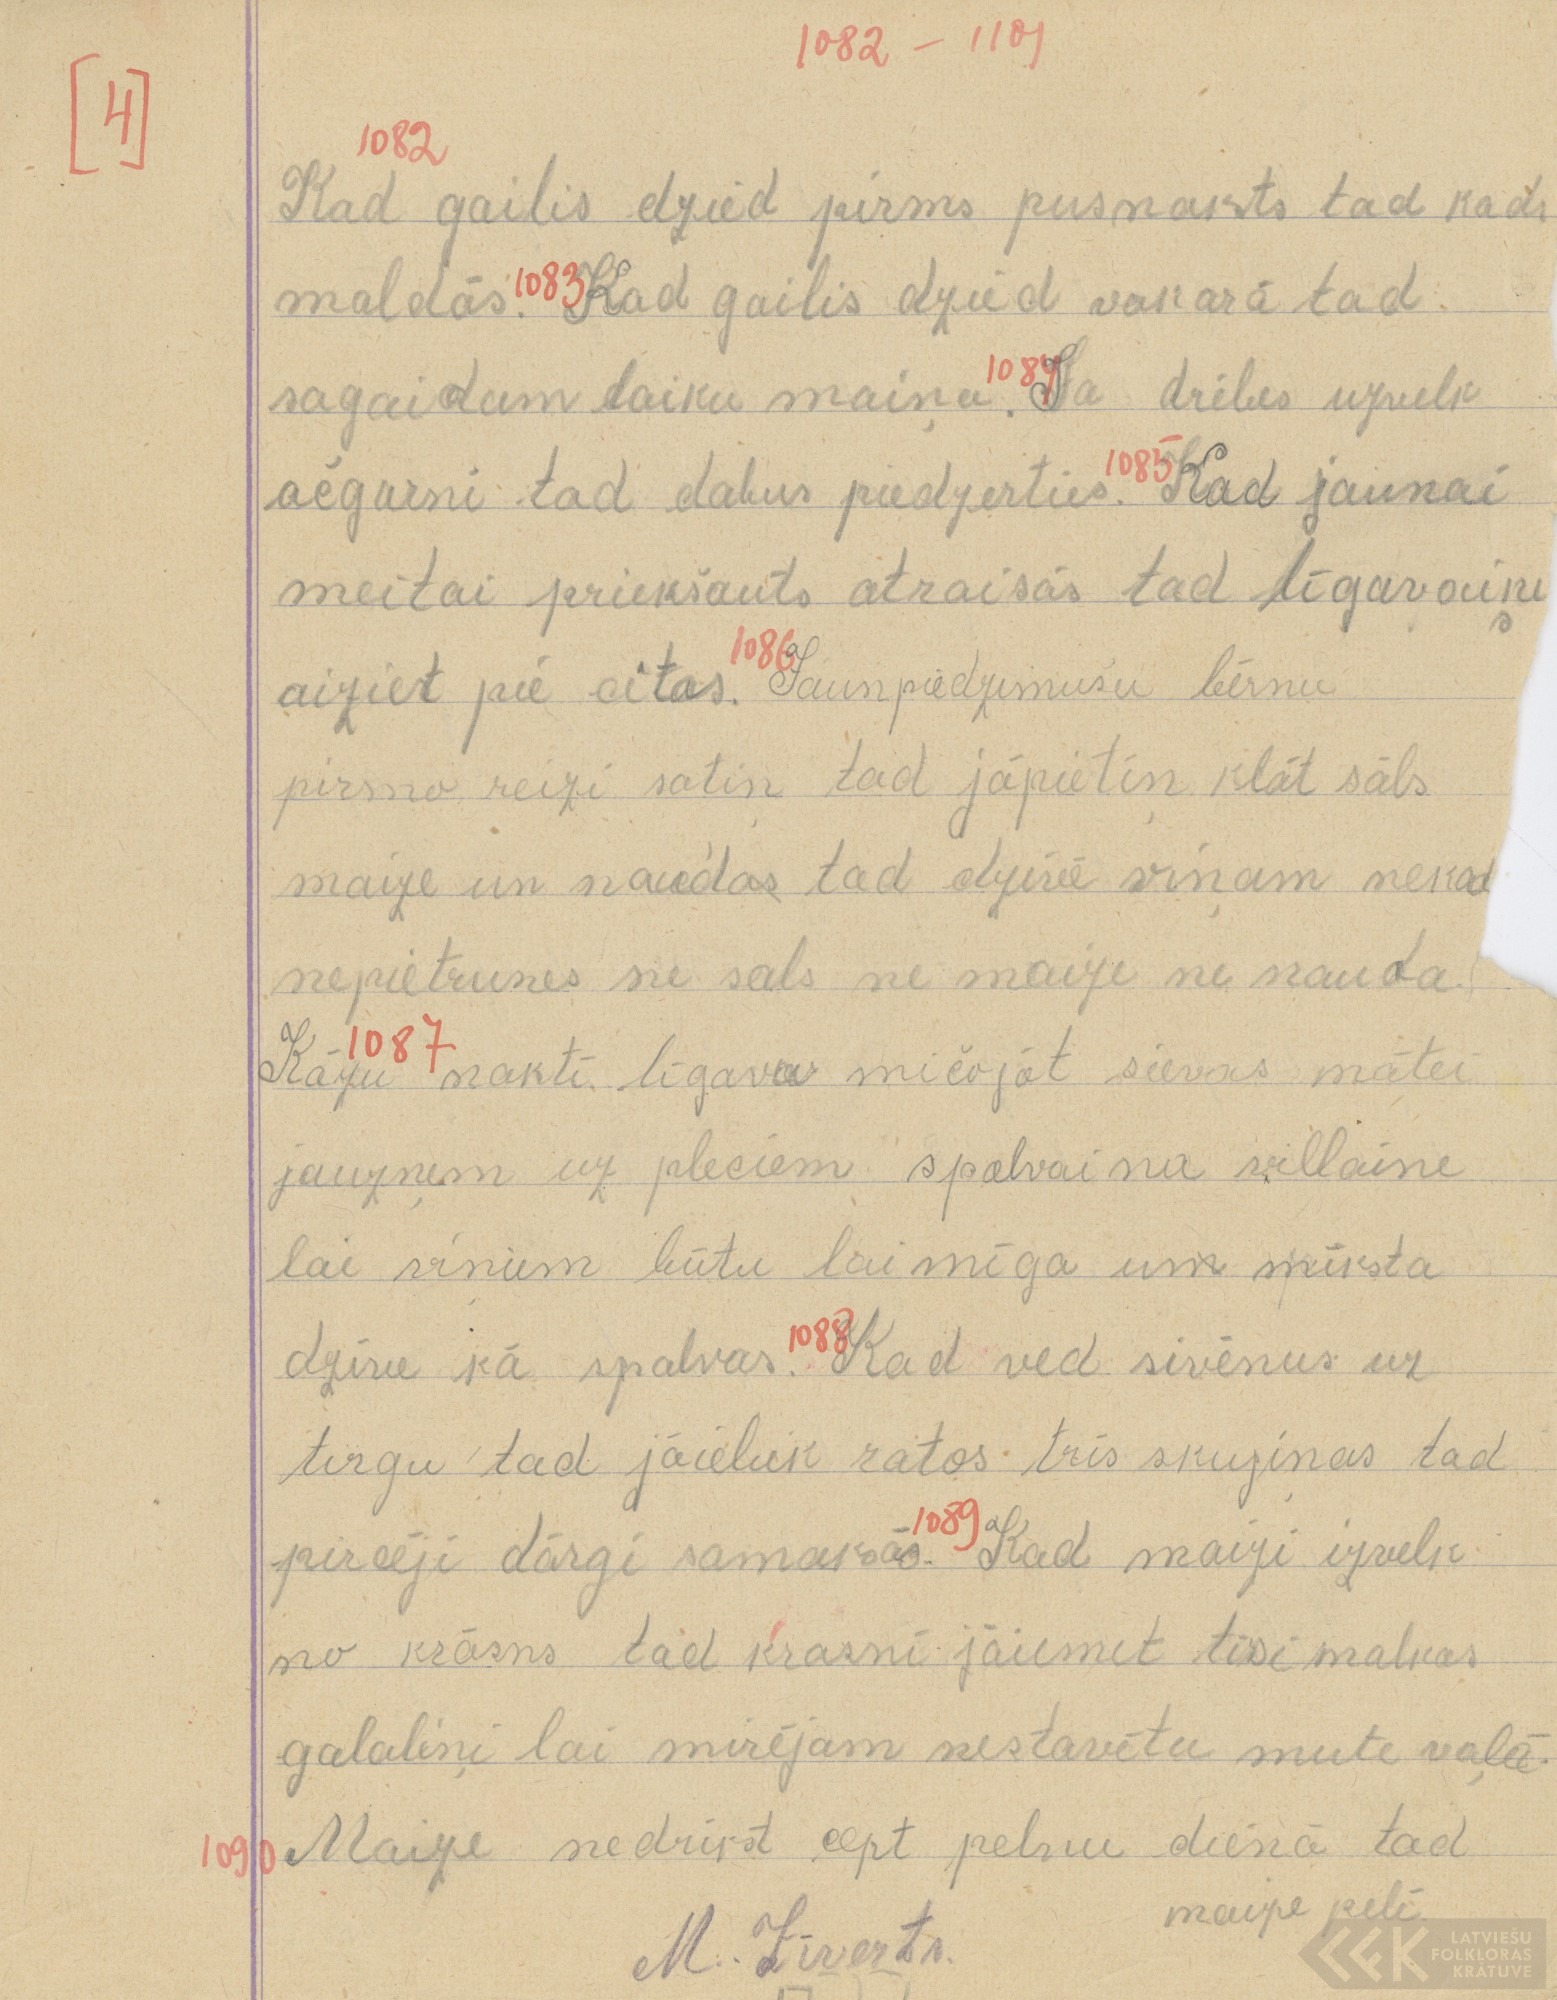 1082 – 1101
[4]
1082
Kad gailis dzied pirms pusnakts tad kāds
maldās. 1083 Kad gailis dzied vakarā tad
sagaidam laiku maiņu. 1084 Ja drēbes uzvelk
ačgurni tad dabus piedzerties. 1085 Kad jaunai
meitai priekšauts atraisās tad līgavaiņs
aiziet pie citas. 1086 Jaunpiedzimušu bērnu
pirmo reizi satin tad jāpietin klāt sāls
maize un naudas tad dzīvē viņam nekad
nepietrunes ne sals ne maize ne nauda.
1087
Kāzu nakti līgavu mičojāt sievas mātei
jauzņem uz pleciem spalvaina villaine
lai viņiem būtu laimīga un mīksta
dzīve kā spalvas. 1088 Kad ved sivēnus uz
tirgu tad jāieliek ratos trīs skuziņas tad
pircēji dārgi samaksās. 1089 Kad maizi izvelk
no krāsns tad krasnī jāiemet tisi malkas
galaliņi lai mirējam nestavētu mute vaļā.
1090 Maize nedrīkst cept pelnu dienā tad
maize pelē
M. Zīverts.
LATVIEŠU
FOLKLORAS
KRĀTUVE